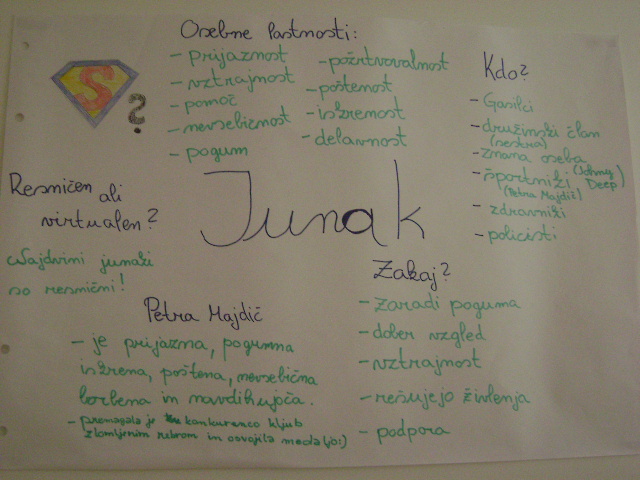 Osebne lastnosti:
- prijaznost
- vztrajnost
- pomoč
- nevsebičnost
- pogum
- požrtvovalnost
- poštenost
- iskrenost
- delavnost
S
?
Kdo?
- Gasilci
- družinski član
(sestra)
- znana oseba
(Johnny Deep)
- športniki
(Petra Majdič)
- zdravniki
- policisti
Resničen ali
virtualen?
Junak
Vsajdnini junaki
so resnični!
Zakaj?
- zaradi poguma
- dober vzgled
- vztrajnost
- rešujejo življenja
- podpora
Petra Majdič
- je prijazna, pogumna
iskrena, poštena, nevsebična
borbena in navdihujoča.
- premagala je konkurenco kljub
zlomljenim rebrom in osvojila medaljo:)